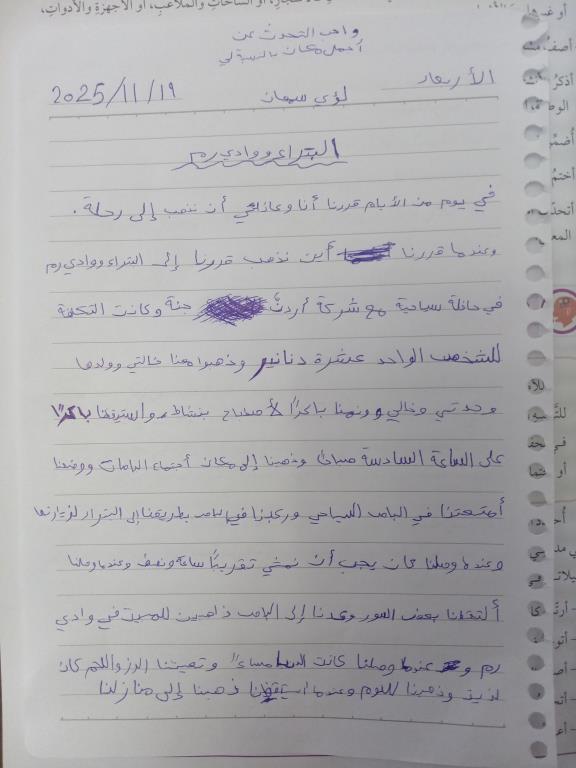 أو الساحاتِ والملاعبِ، أو الأجهزةِ والأدواتِ،
واجب التحدث عن
أجمل مكان بالنسبة لي
الأربعاء
لؤي سمعان
2025/11/19
البتراء ووادي رم
في يوم من الأيام قررنا أنا وعائلتي أن نذهب إلى رحلة.
وعندما قررنا أين نذهب قررنا إلى البتراء ووادي رم
في حافلة سياحية مع شركة أردن جنة وكانت التكلفة
للشخص الواحد عشرة دنانير وذهبوا معنا خالتي وولدها
وجدتي وخالي ونمنا باكرًا لأصطباح بنشاط واستيقظنا باكرًا
على الساعة السادسة صباحًا وذهبنا إلى مكان أجتماع الباصات ووضعنا
أمتعتنا في الباص السياحي وركبنا في باص بطريقنا إلى البتراء لزيارتها
وعندما وصلنا كان يجب أن نمشي تقريبًا ساعة ونصف وعندما وصلنا
ألتقطنا بعض الصور وعدنا إلى الباص ذاهبين للمبيت في وادي
رم وعندما وصلنا كانت مساءً وتعشينا الرز واللحم كان
لذيذ وذهبنا للنوم وعندما استيقظنا ذهبنا إلى منازلنا